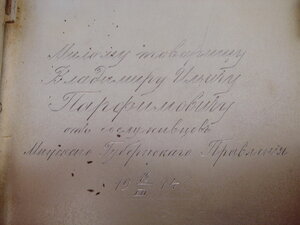 Милому товарищу
Владимиру Ильичу
Парфимовичу
отъ сослуживцевъ
Минскаго Губернскаго Правленія
19 III 14